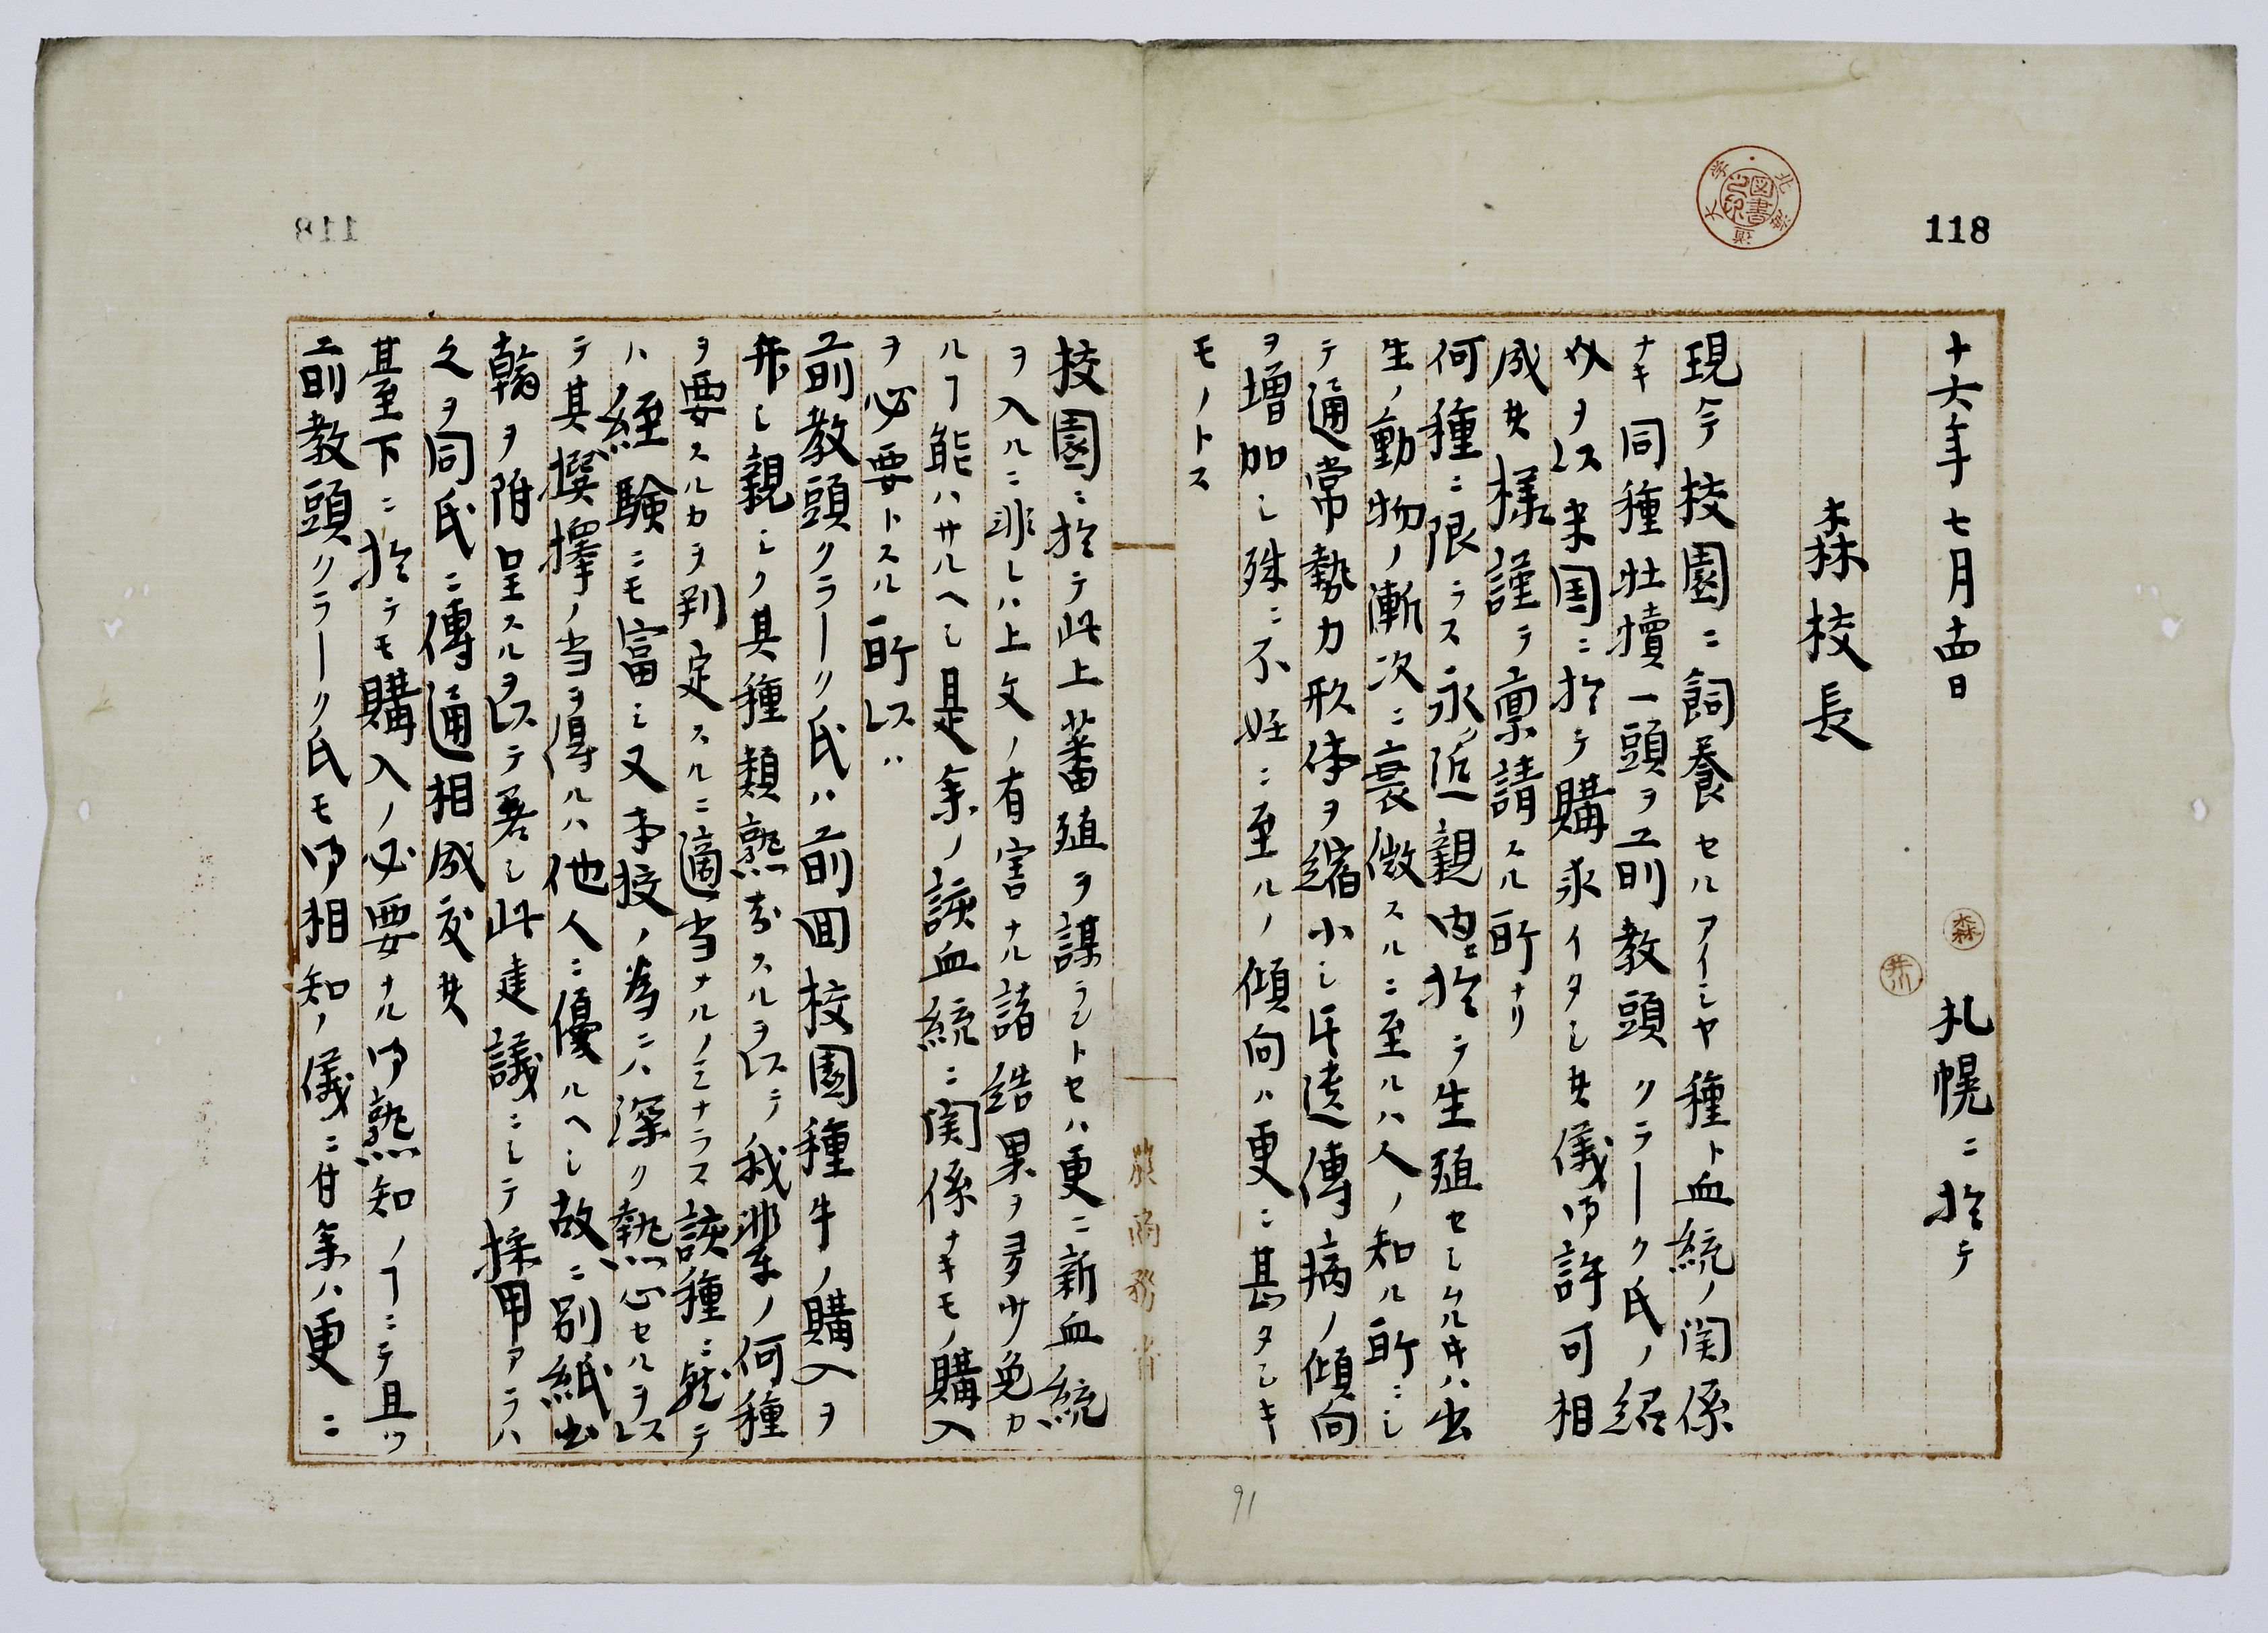 118
十六年七月十四日 札幌ニ於テ
森
井川
森校長
現今校園ニ飼養セルアイシヤ種ト血統ノ関係
ナキ同種牡犢一頭ヲ前教頭クラーク氏ノ紹
介ヲ以米国ニ於テ購求イタシ度儀御許可相
成度様謹テ稟請スル所ナリ
何種ニ限ラス永ク近親内ニ於テ生殖セシムル時ハ出
生ノ動物ノ漸次ニ衰微スルニ至ルハ人ノ知ル所ニシ
テ通常勢力形体ヲ縮小シ且遺傳病ノ傾向
ヲ増加シ殊ニ不妊ニ至ルノ傾向ハ更ニ甚タシキ
モノトス
農商務省
校園ニ於テ此上蕃殖ヲ謀ラントセハ更ニ新血統
ヲ入ルニ非レハ上文ノ有害ナル諸結果ヲ多少免カ
ルヿ能ハサルヘシ是余ノ該血統ニ関係ナキモノ購入
ヲ必要トスル所以ハ
前教頭クラーク氏ハ前回校園種牛ノ購入ヲ
弁シ親シク其種類熟知スルヲ以テ我輩ノ何種
ヲ要スルカヲ判定スルニ適当ナルノミナラス該種ニ就テ
ハ経験ニモ富ミ又本校ノ為ニハ深ク熱心セルヲ以
テ其撰擇ノ当ヲ得ルハ他人ニ優ルヘシ故ニ別紙書
翰ヲ附呈スルヲ以テ若シ此建議ニシテ採用アラハ
之ヲ同氏ニ傳通相成度
基下ニ於テモ購入ノ必要ナル御熟知ノヿニテ且ツ
前教頭クラーク氏モ御相知ノ儀ニ付余ハ更ニ
91